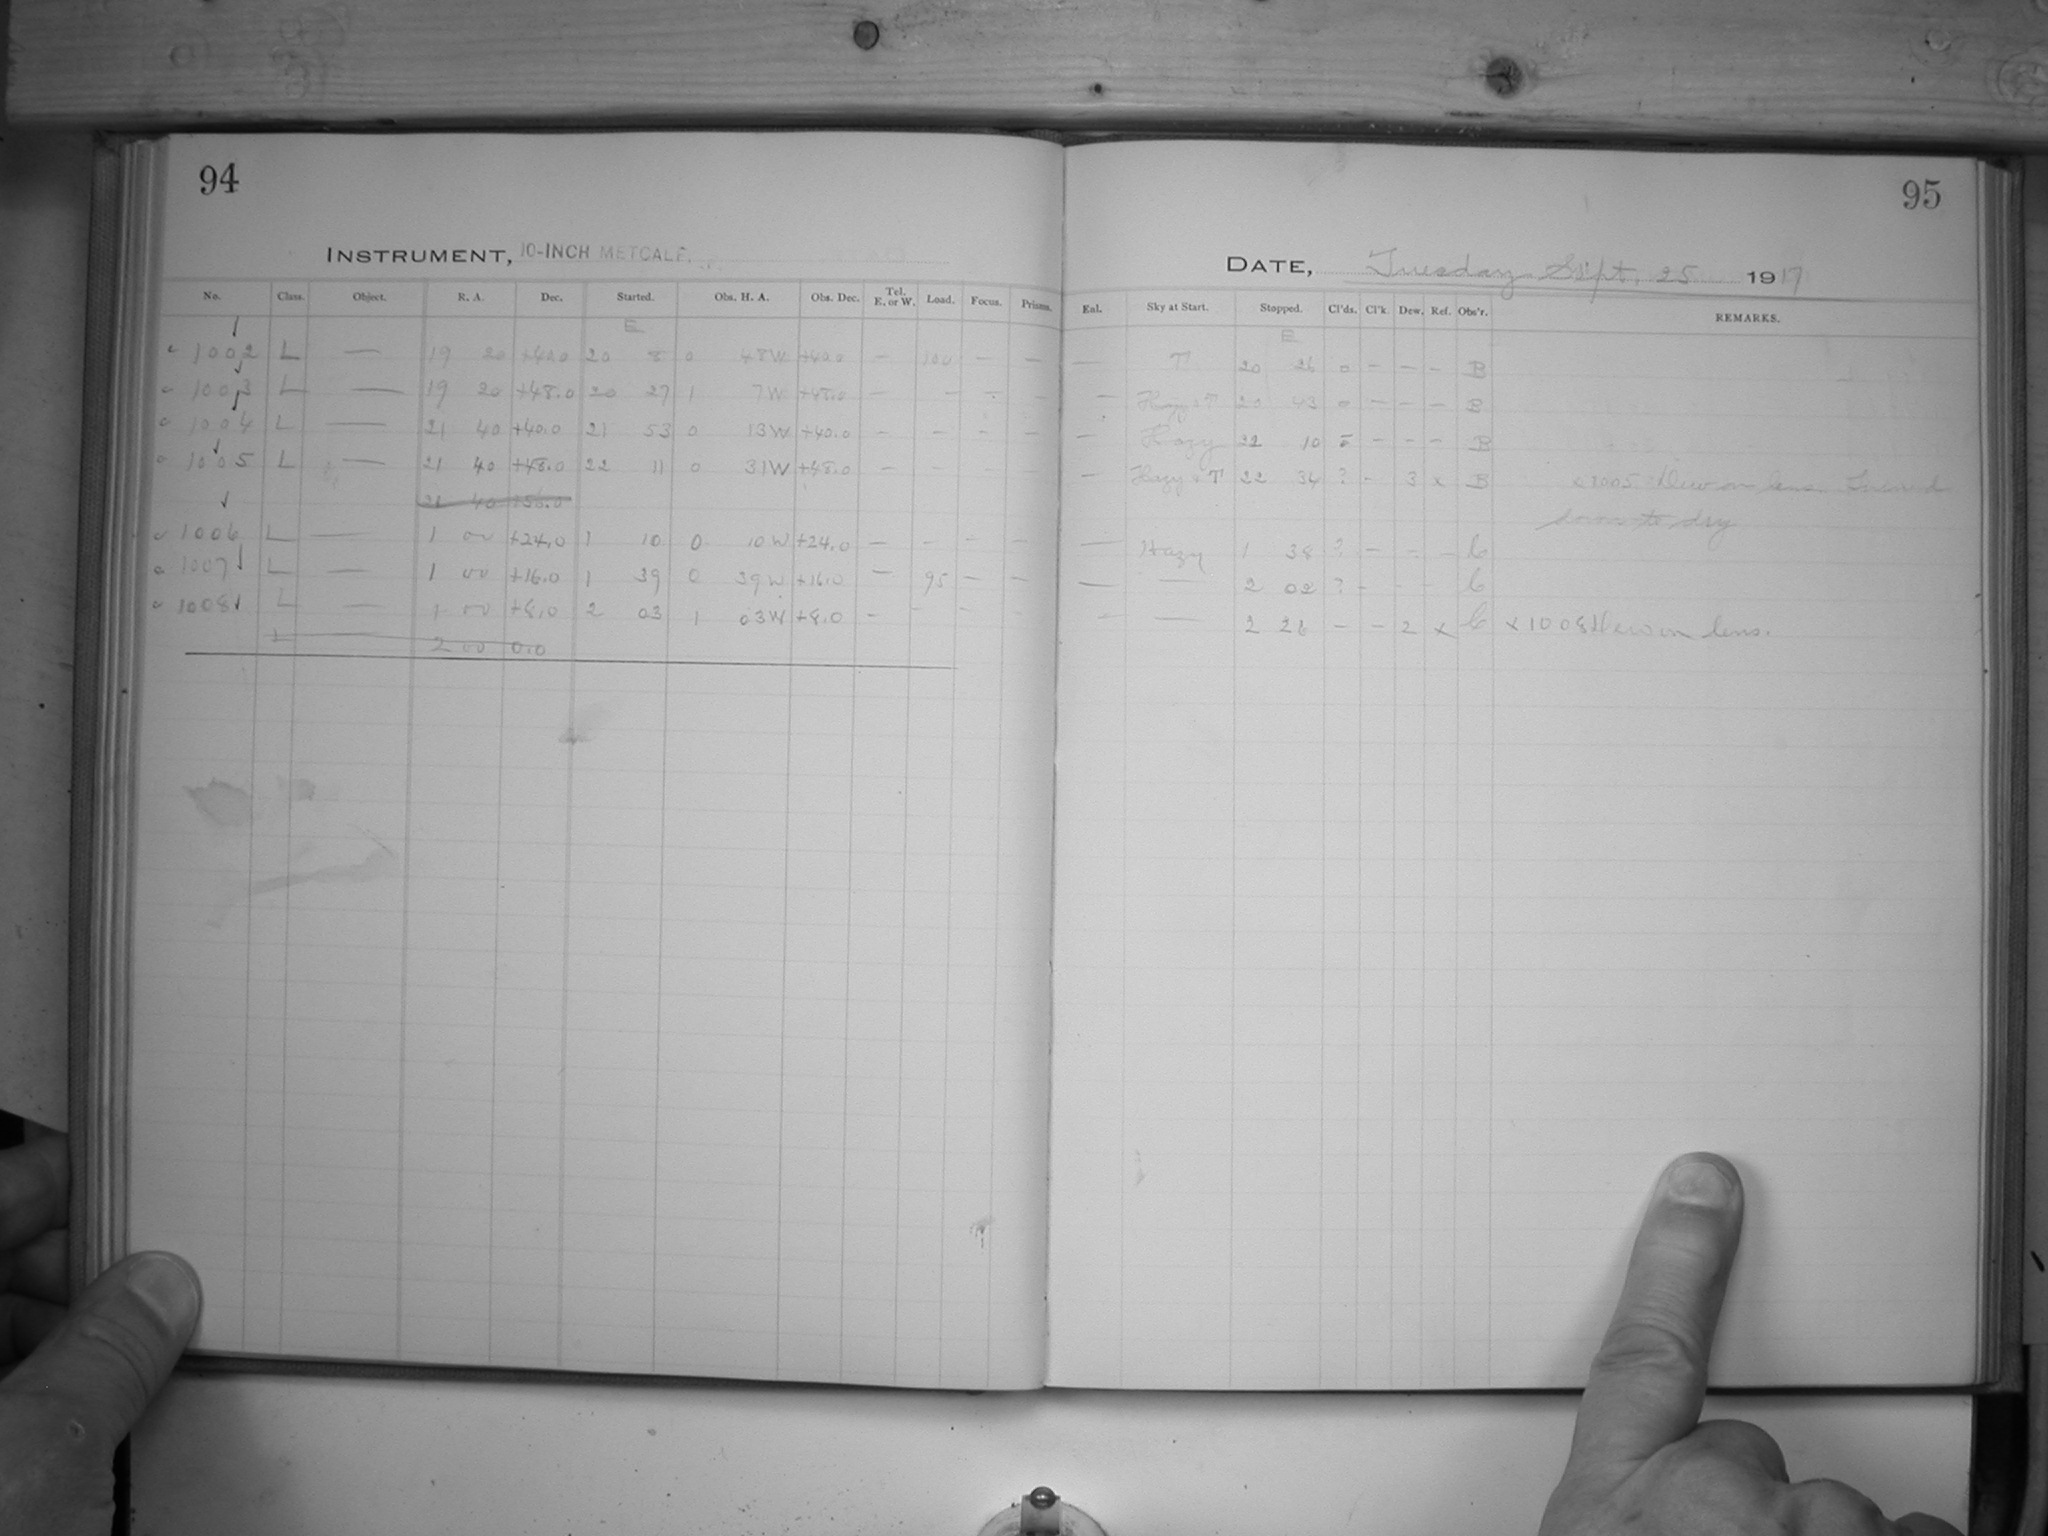 94
95
INSTRUMENT, 10-INCH METCALF.
DATE, Tuesday Sept. 25 1917
No. Class. Object. R. A. Dec. Started. Obs. H. A. Obs. Dec. Tel. E. or W. Load. Focus. Prisms. Eal. Sky at Start. Stopped. Cl'ds. Cl'k. Dew. Ref. Obs'r. REMARKS.
E E
1002 L — 19 20 +40.0 20 8 0 48W +40.0 — 100 — — — T 20 26 0 — — — B
1003 L — 19 20 +48.0 20 27 1 7W +48.0 — — — — — Hazy & T 20 43 0 — — — B
1004 L — 21 40 +40.0 21 53 0 13W +40.0 — — — — — Hazy 22 10 0 — — — B
1005 L — 21 40 +48.0 22 11 0 31W +48.0 — — — — — Hazy & T 22 34 ? — 3 x B x1005 Dew on lens. Turned
21 40 +56.0 down to dry
1006 L — 1 00 +24.0 1 10 0 10W +24.0 — — — — — Hazy 1 38 ? — — — C
1007 L — 1 00 +16.0 1 39 0 39W +16.0 — 95 — — — — 2 02 ? — — — C
1008 L — 1 00 +8.0 2 03 1 03W +8.0 — — — — — — 2 26 — — 2 x C x1008 Dew on lens.
L 2 00 0.0